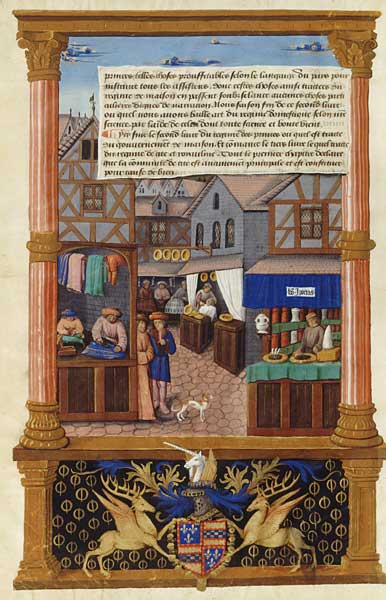 princes telles choses prouffitables selon le languaige du pais pour
instruire tous les assistens. Donc cestes choses ainsi traictees du
regime de maison en passant soubz silence aucunes choses parti
culieres dignes de narration. Nous faison fin de ce second livre
ou quel nous avons baille art du regime domestique selon
science par laide de celui dont toute science et bonte vient.
fine le second livre du regime des princes ou quel est traicte
du gouvernement de maison. Et commance le tiers livre le quel traicte
du regime de cite et royaulme. Dont le premier chapitre declaire
que la communite de cite est aucunement principale et est constituee
pour cause de bien